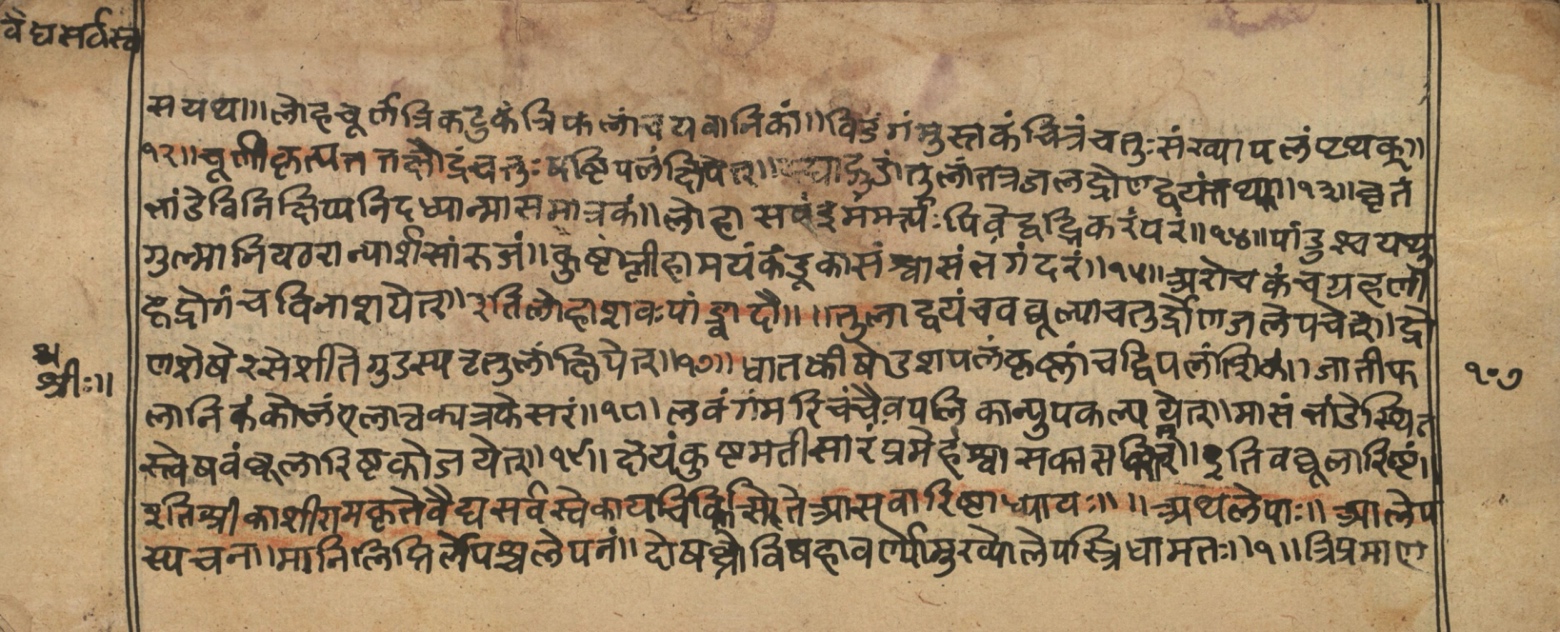 वैद्यसर्वस्व
सयथा॥ लोहचूर्णत्रिकटुकंत्रिफलांचयवानिकां॥ विडंगंमुस्तकंचित्रंचतुःसंख्यापलंप्टथक्॥
१२॥ चूर्णीकृत्यततक्षौद्रंचतुःषष्टिपलंक्षिपेत्॥ द्याद्गुडतुलांतत्रजलद्रौणद्वयंतथा॥१३॥ घृत
भांडेविनिक्षिप्यनिदध्यान्मासमात्रकं॥ लोहासवंइमंमर्त्यःपिबेद्वह्निकरंपरं॥१४॥ पांडुश्वयथु
गुल्मानियठरान्यार्शसांरूजं॥ कुष्टप्लीहामयंकंडूकासंश्वासंभगंदरं॥१५॥ अरोचकंचग्रहणी
हृद्रोगंचविनाशयेत्॥ इतिलोहाशवःपांड्वादौ॥ ॥ तुलाद्वयंचवब्बूल्याचतुर्द्रोणजलेपचेत्॥ द्रो
णशेषेरसेशीतेगुडस्यतुलांक्षिपेत्॥१७॥ धातकीषोडशपलंकृष्णांचद्विपलांशिकां॥ जातीफ
लानिकंकोलंएलात्वक्पत्रकेसरं॥१८॥ लवंगंमरिचंचैवपलिकान्युपकल्पयेत्॥ मासंभांडेस्थित
स्त्वेषवंब्बूलारिष्टकोजयेत्॥१९॥ क्षयंकुष्टमतीसारंप्रमेहंश्वासकास॥ इतिवब्बूलारिष्टं॥
इतिश्रीकाशीरामकृतेवैद्यसर्वस्वेकायचिकित्सितेआसवारिष्टाध्यायः॥ ॥ अथलेपाः॥ आलेप
स्यचनामानिलिप्तिर्लेपश्चलेपनं॥ दोषघ्नोविषहावर्ण्योमुखलेपस्त्रिधामतः॥१॥ त्रिप्रमाण
श्रीः॥
१०७